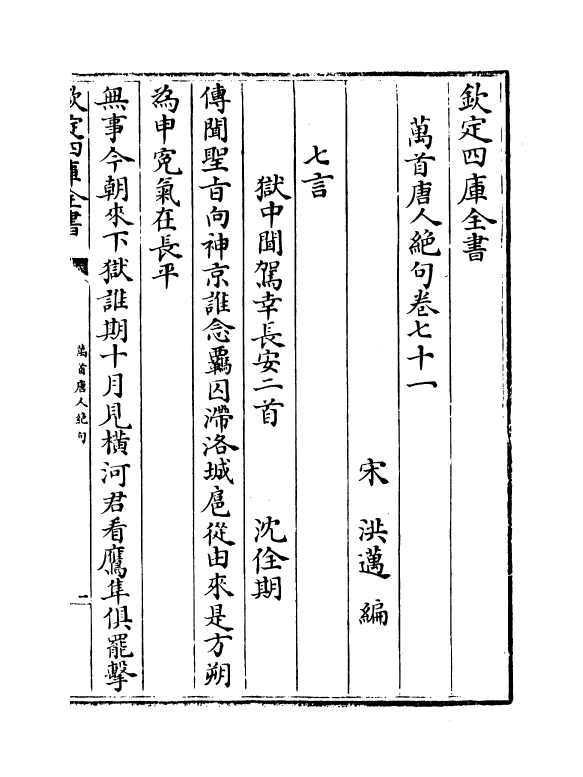 欽定四庫全書
萬首唐人絕句卷七十一
宋　洪邁　編
七言
獄中聞駕幸長安二首　沈佺期
傳聞聖旨向神京誰念羈囚滯洛城扈從由來是方朔
為申寃氣在長平
無事今朝來下獄誰期十月見橫河君看鷹隼俱罷擊
欽定四庫全書
萬首唐人絕句
一